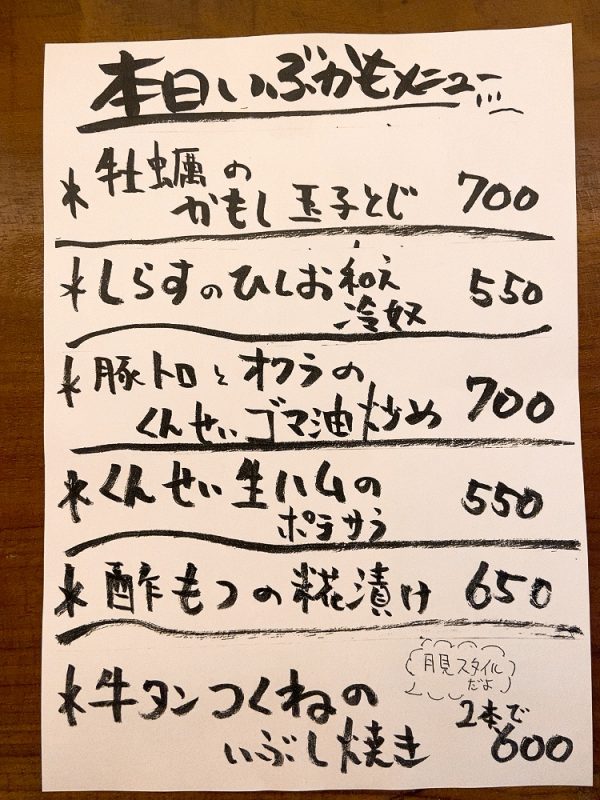 本日いぶかもメニュー
*牡蠣の
かもし玉子とじ 700
*しらすのひしお和え
冷奴 550
*豚トロとオクラの
くんせいゴマ油炒め 700
*くんせい生ハムの
ポテサラ 550
*酢もつの糀漬け 650
月見スタイル
だよ
*牛タンつくねの 2本で
いぶし焼き 600